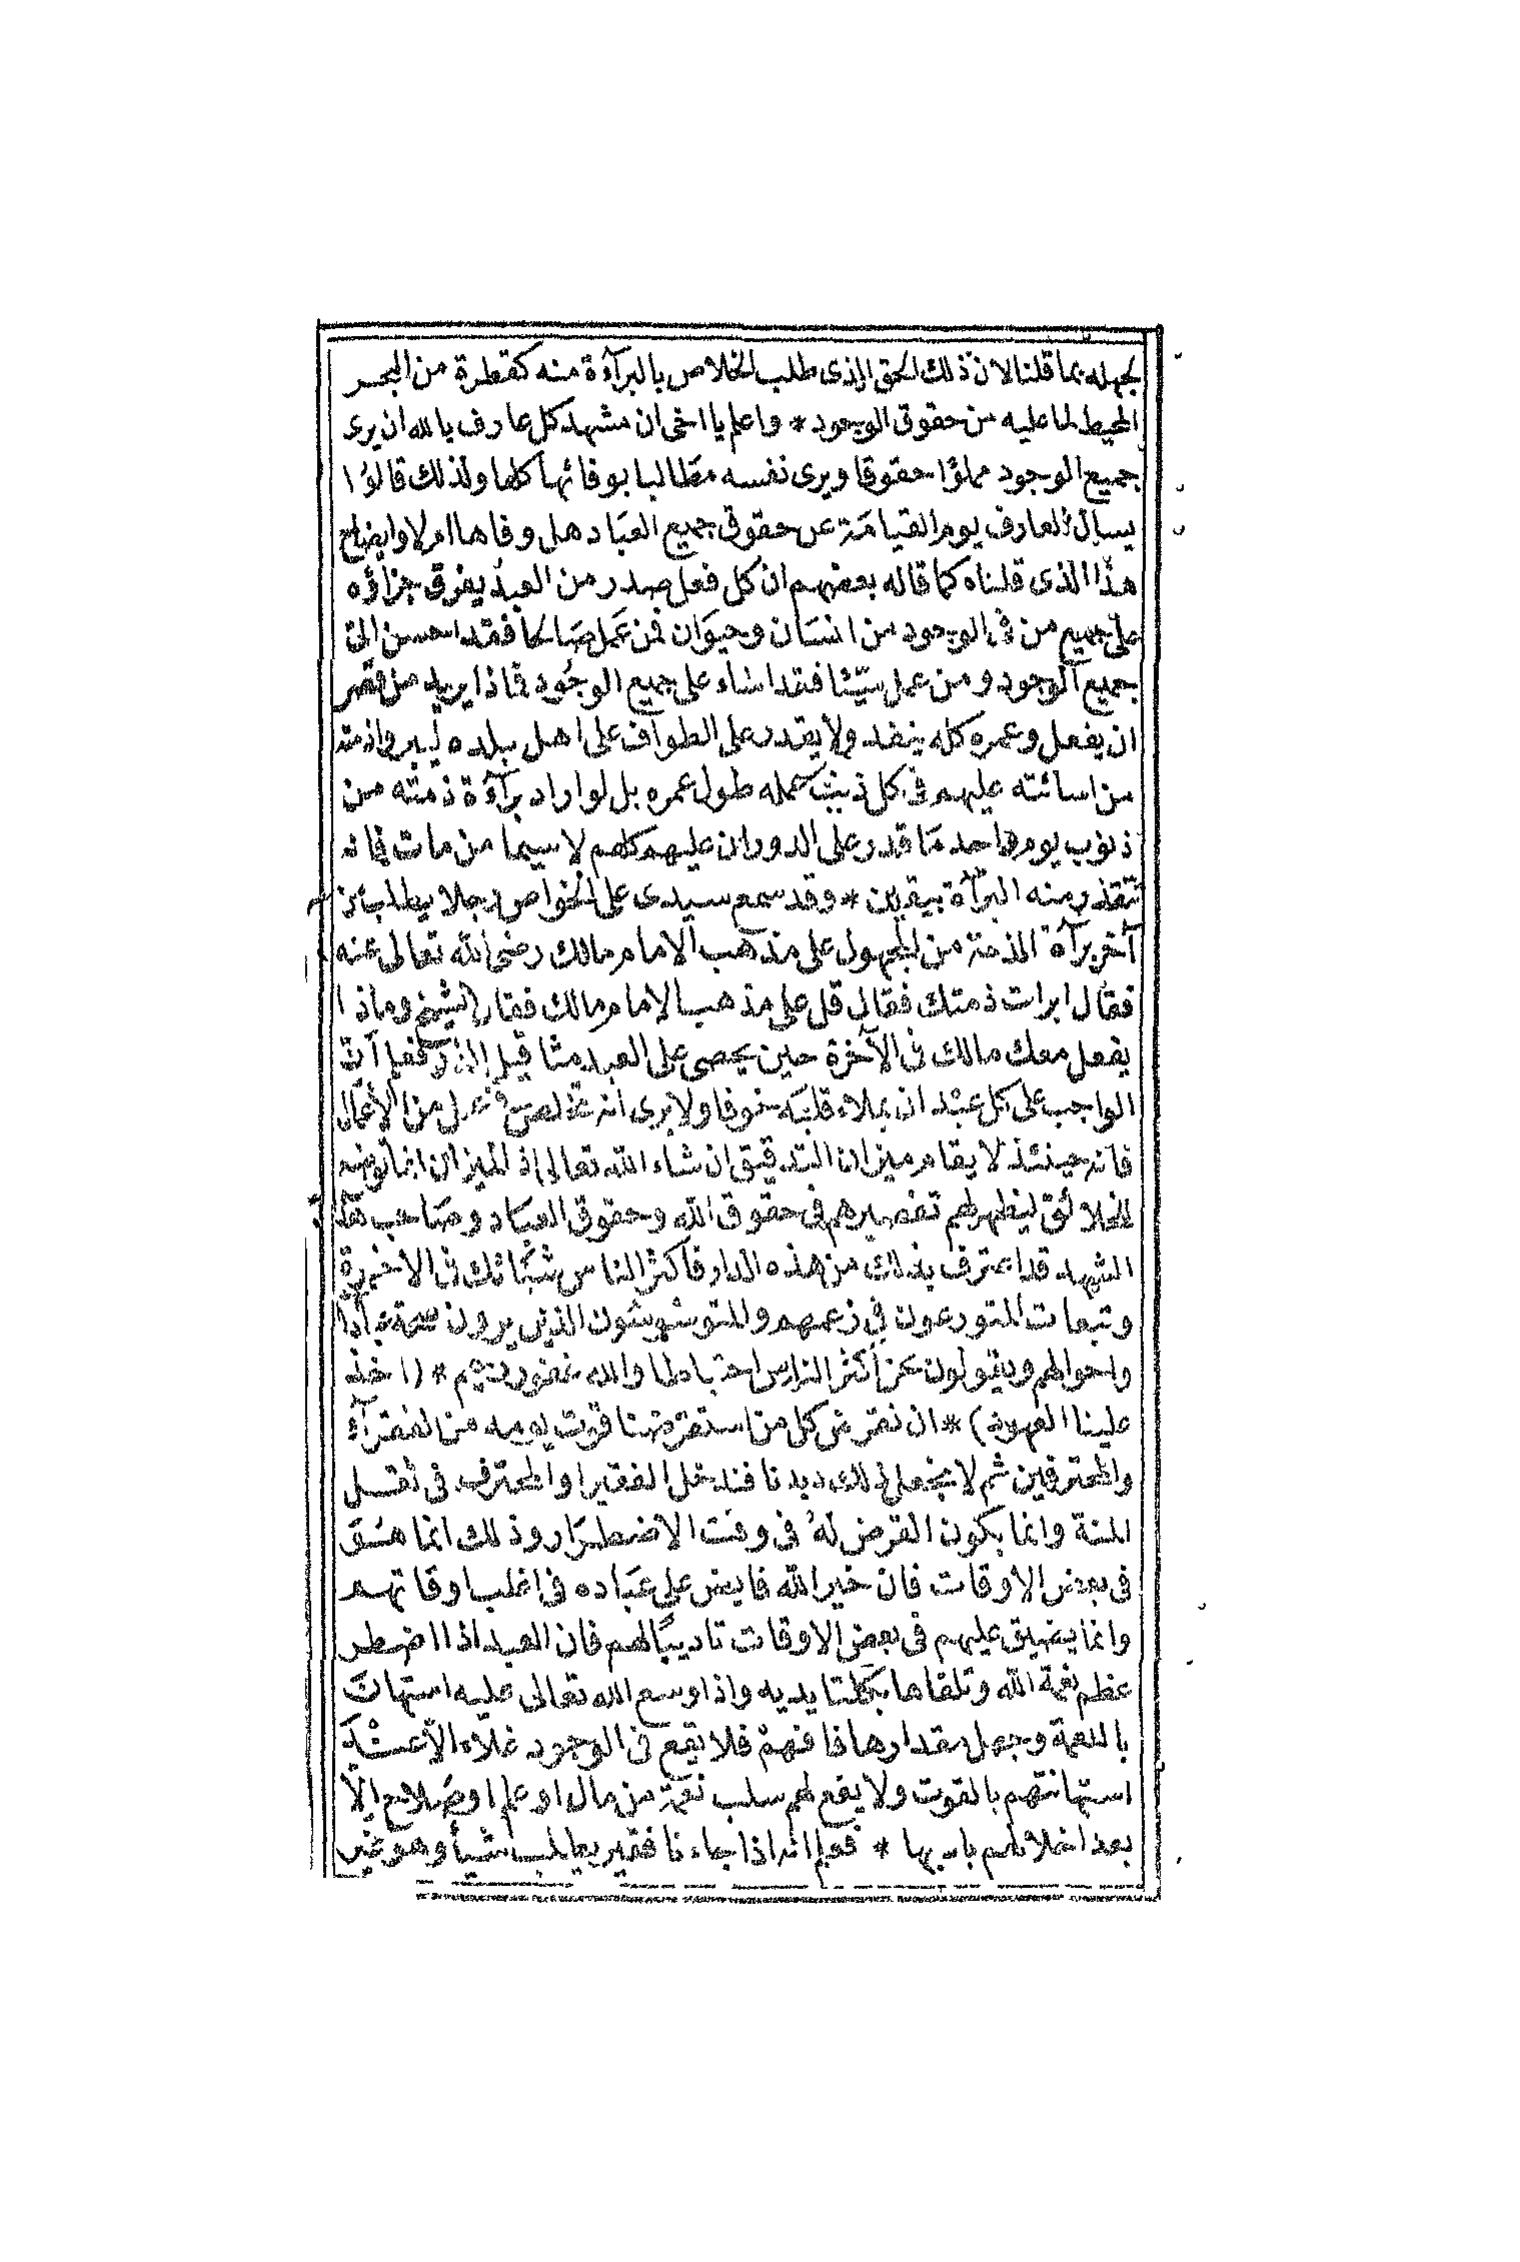 لجهله بما قلنا لان ذلك الحق الذى طلب الخلاص بالبرآءة منه كقطرة من البحر
المحيط لما عليه من حقوق الوجود * واعلم يا اخى ان مشهد كل عارف بالله ان يرى
جميع الوجود مملؤا حقوقا ويرى نفسه مطالبا بوفائها كلها ولذلك قالوا
يسأل العارف يوم القيامة عن حقوق جميع العباد هل وفاها ام لا وايضاح
هذا الذى قلناه كما قاله بعضهم ان كل فعل صدر من العبد يفرق جزاؤه
على جميع من فى الوجود من انسان وحيوان فمن عمل صالحا فقد احسن الى
جميع الوجود ومن عمل سيئا فقد اساء على جميع الوجود فماذا يريد من قصر
ان يفعل وعمره كله ينفد ولا يقدر على الطواف على اهل بلده ليبروا ذمته
من اسائته عليهم فى كل ذنب عمله طول عمره بل لو اراد برآءة ذمته من
ذنوب يوم واحد ما قدر على الدوران عليهم كلهم لا سيما من مات فانه
تتعذر منه البرآة بيقين * وقد سمع سيدى على الخواص رجلا يطلب من
آخر برآة الذمة من المجهول على مذهب الامام مالك رضى الله تعالى عنه
فقال ابرات ذمتك فقال قل على مذهب الامام مالك فقال الشيخ وماذا
يفعل معك مالك فى الآخرة حين يحصى على العبد مثاقيل الذر فعلم ان
الواجب على كل عبد ان يملاء قلبه خوفا ولا يرى انه تخلص فى عمل من الاعمال
فانه حينئذ لا يقام ميزان التدقيق ان شاء الله تعالى اذ الميزان انما توضع
للخلائق ليظهر لهم تقصيرهم فى حقوق الله وحقوق العباد وصاحب هذا
المشهد قد اعترف بذلك من هذه الدار فاكثر الناس شبائك فى الاخرة
وتبعات المتورعون فى زعمهم والمتوسوسون الذين يرون صحة عبادا
واحوالهم ويقولون نحن أكثر الناس احتياطا والله غفور رحيم * (اخذ
علينا العهود) * ان نقرض كل من استقرضنا قوت يومه من الفقرآء
والمحترفين ثم لا نجعل ذلك ديدنا فندخل الفقير او المحترف فى ثقل
المنة وانما يكون القرض له فى وقت الاضطرار وذلك انما هو
فى بعض الاوقات فان خير الله فايض على عباده فى اغلب اوقاتهم
وانما يضيق عليهم فى بعض الاوقات تاديبا لهم فان العبد اذا اضطر
عظم نعمة الله وتلقاها بكلتا يديه واذا وسع الله تعالى عليه استهان
بالنعمة وجهل مقدارها فافهم فلا يقع فى الوجود غلاء الا عند
استهانتهم بالقوت ولا يقع لهم سلب نعمة من مال او علم او صلاح الا
بعد اخلالهم بادبها * فعلم انه اذا جاءنا فقير يطلب شيأ وهو غير